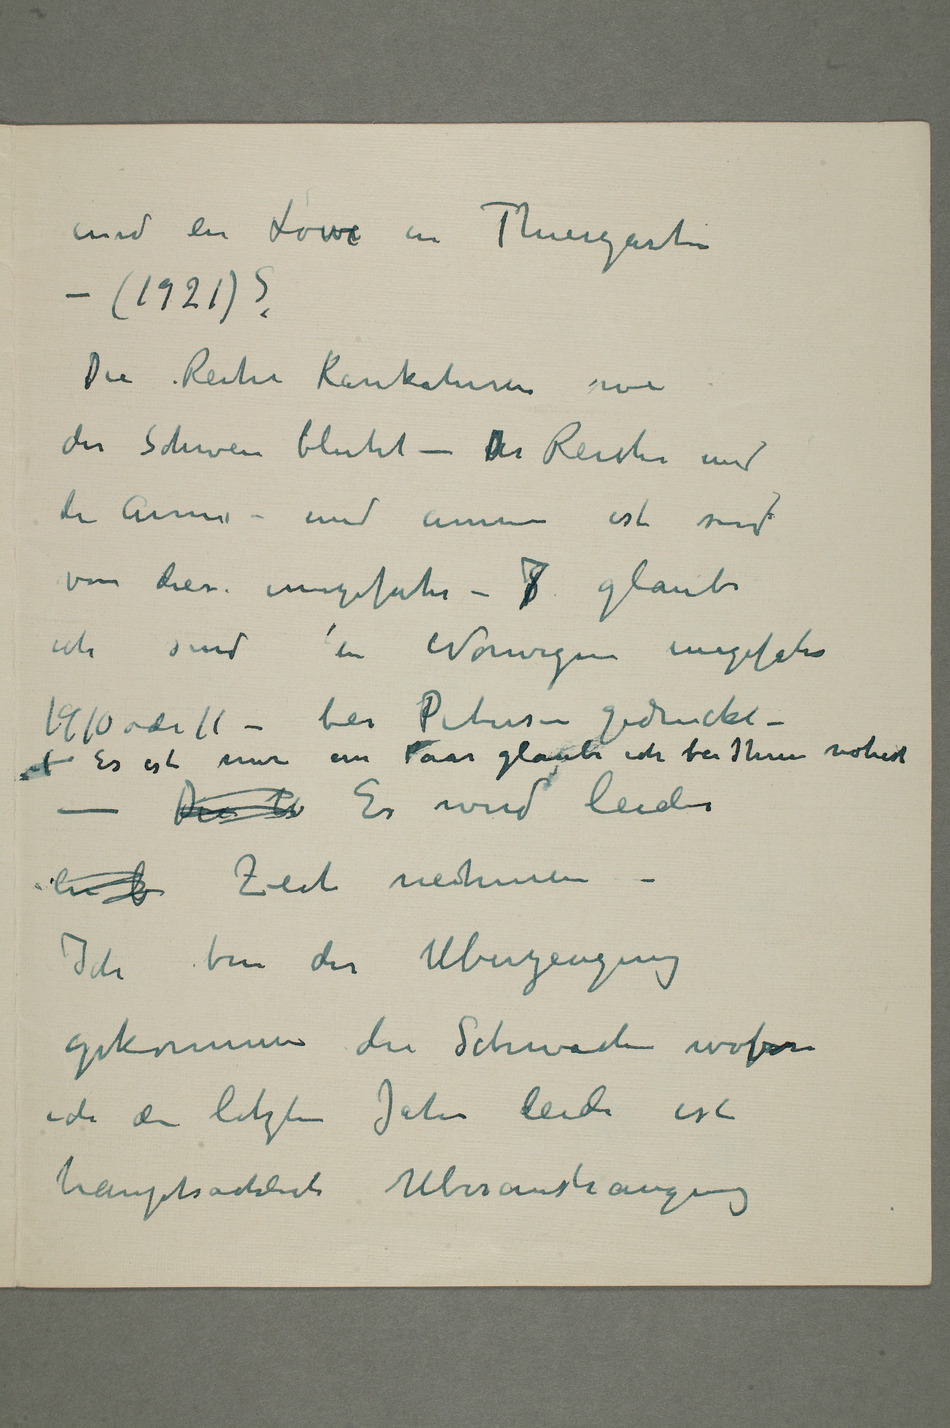 und der Löwe im Thiergarten
– (1921)?
Die Reihe Karikaturen wie
der Schwein blutet – Der Reiche und
der Arme – und ist sind
von dies. ungefähr – 7 glaube
ich sind in Norwegen ungefähr
1910 oder 11 – bei Petersen gedruckt –
Es ist nur ein Paar glaube ich bei Ihnen
– Es wird leider
Zeit nehmen –
Ich bin der Uberzeugung
gekommen die Schwäche wofon
ich den letzten Jahr leide ist
hauptsächlich Uberanstrangung